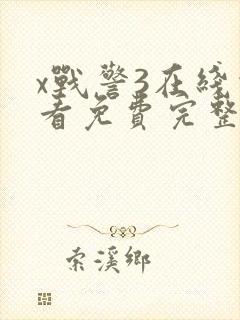 x戰警3在綫
看免費完整
索溪鄉